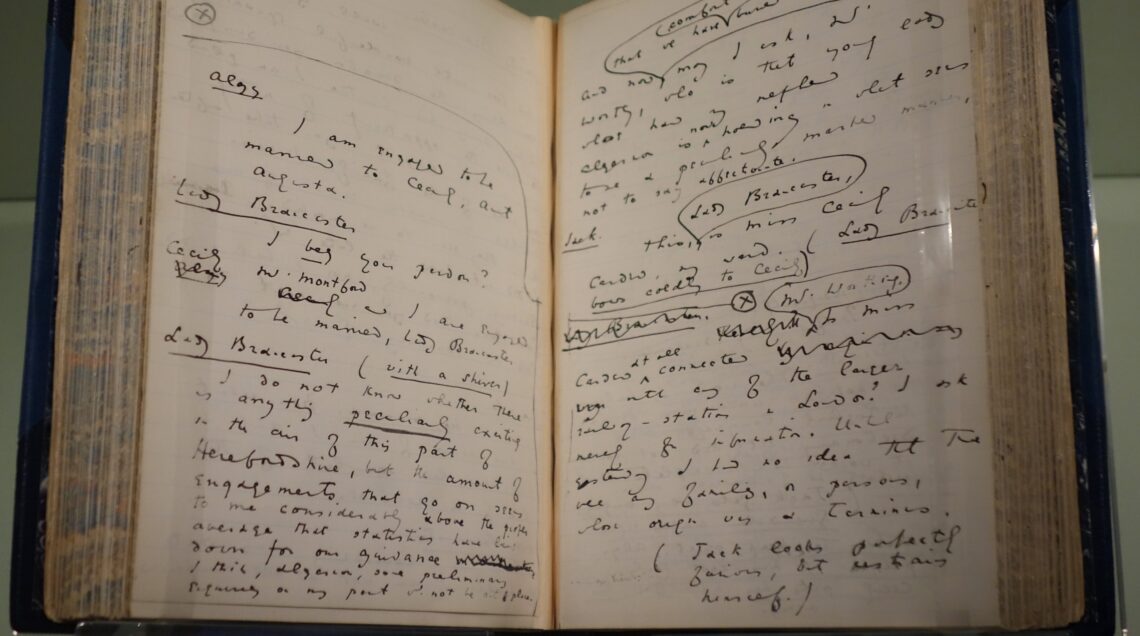 Algy
I am engaged to be
married to Cecily, Aunt
Augusta.
Lady Brancaster
I beg your pardon?
Cecily
Mr. Montford
and I are engaged
to be married, Lady Brancaster
Lady Brancaster (with a shiver)
I do not know whether there
is anything peculiarly exciting
in the air of this part of
Herefordshire, but the amount of
engagements that go on seems
to me considerably above the proper
average that statistics have laid
down for our guidance
I think, Algernon, some preliminary
enquiry on my part wd. not be out of place.
(comfort
that we have
and now may I ask, Mr.
Worthing, who is that young lady
whose hand my nephew
Algernon is now holding in what seems
to me a peculiarly marked manner,
not to say affectionate.
Lady Brancaster,
Jack.
this is Miss Cecily
Cardew, my ward. (Lady Brancaster
bows coldly to Cecily)
Lady Brancaster. Mr. Worthing,
is Miss
Cardew at all connected
with any of the larger
railway-stations in London? I ask
merely for information. Until
yesterday I had no idea that there
were any family, or persons,
whose origin was a Terminus.
(Jack looks perfectly
furious, but restrains
himself.)